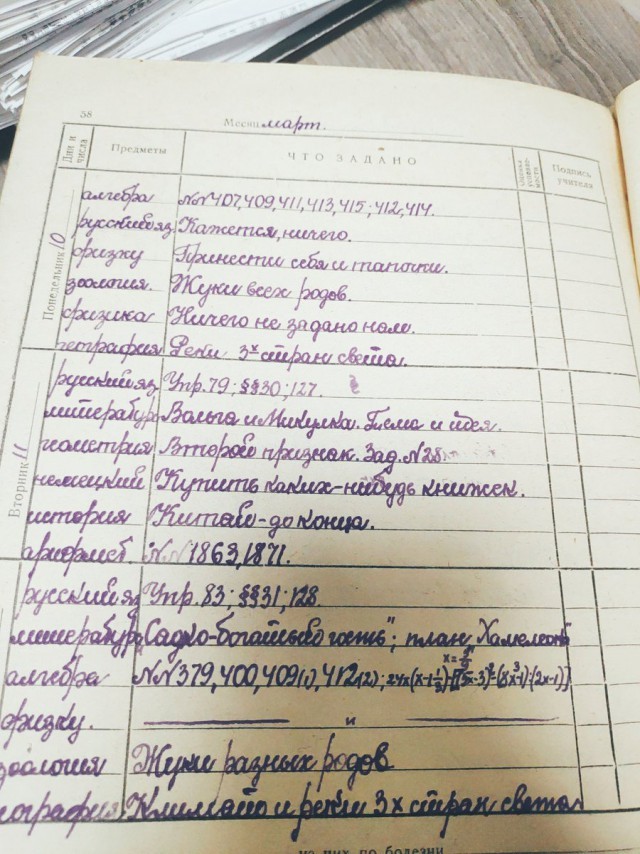 38
Месяц март.
Дни и числа Предметы ЧТО ЗАДАНО Оценка успеваемости Подпись учителя
Понедельник 10
алгебра №№407,409,411,413,415;412,414.
русский яз Кажется, ничего.
физку Принести себя и тапочки.
зоология. Жуки всех родов.
физика Ничего не задано нам.
география Реки 3х стран света.
Вторник 11
русский яз Упр.79; §§30;127.
литература Вольга и Микулка. Тема и идея.
геометрия Второй признак. Зад. №28.
немецкий Купить каких-нибудь книжек.
история Китай-до конца.
арифмет. №№1863,1871.
русский яз Упр.83; §§31;128.
литература "Садко-богатый гость"; план,
алгебра №№379,400,409(1),412(2);
физку. и
зоология Жуки разных родов
география Климат и реки 3х стран света
их по болезни